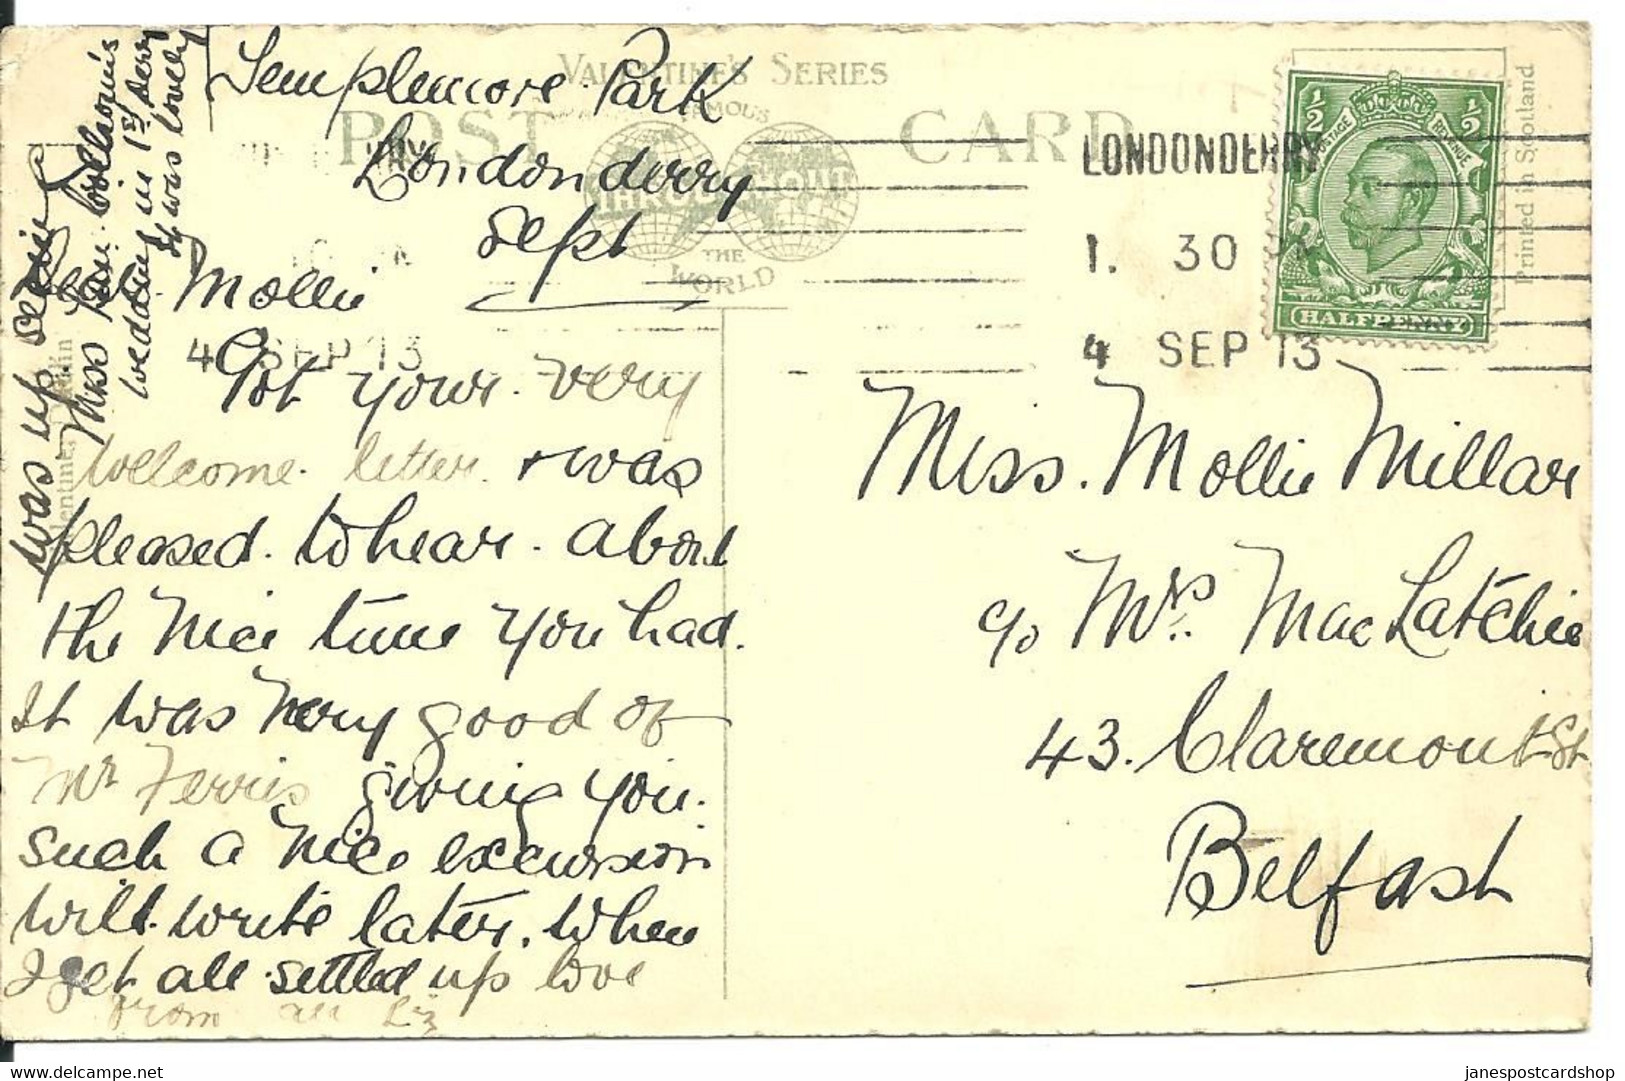 Templemore Park
Londonderry
Sept
Dear Mollie
Got your very
welcome letter + was
pleased to hear about
the nice time you had.
It was very good of
Mr Ferris giving you
such a nice excursion
will write later. when
I get all settled up love
from all Liz
was up seeing
Miss
wedding in 1st Derry
It was lovely
VALENTINE'S SERIES
POST CARD
FAMOUS
THROUGHOUT
THE
WORLD
Printed in Scotland
LONDONDERRY
1. 30 PM
4 SEP 13
4 SEP 13
½ ½
POSTAGE REVENUE
HALFPENNY
Miss. Mollie Millar
c/o Mrs. MacLatchie
43. Claremont St
Belfast
janespostcardshop